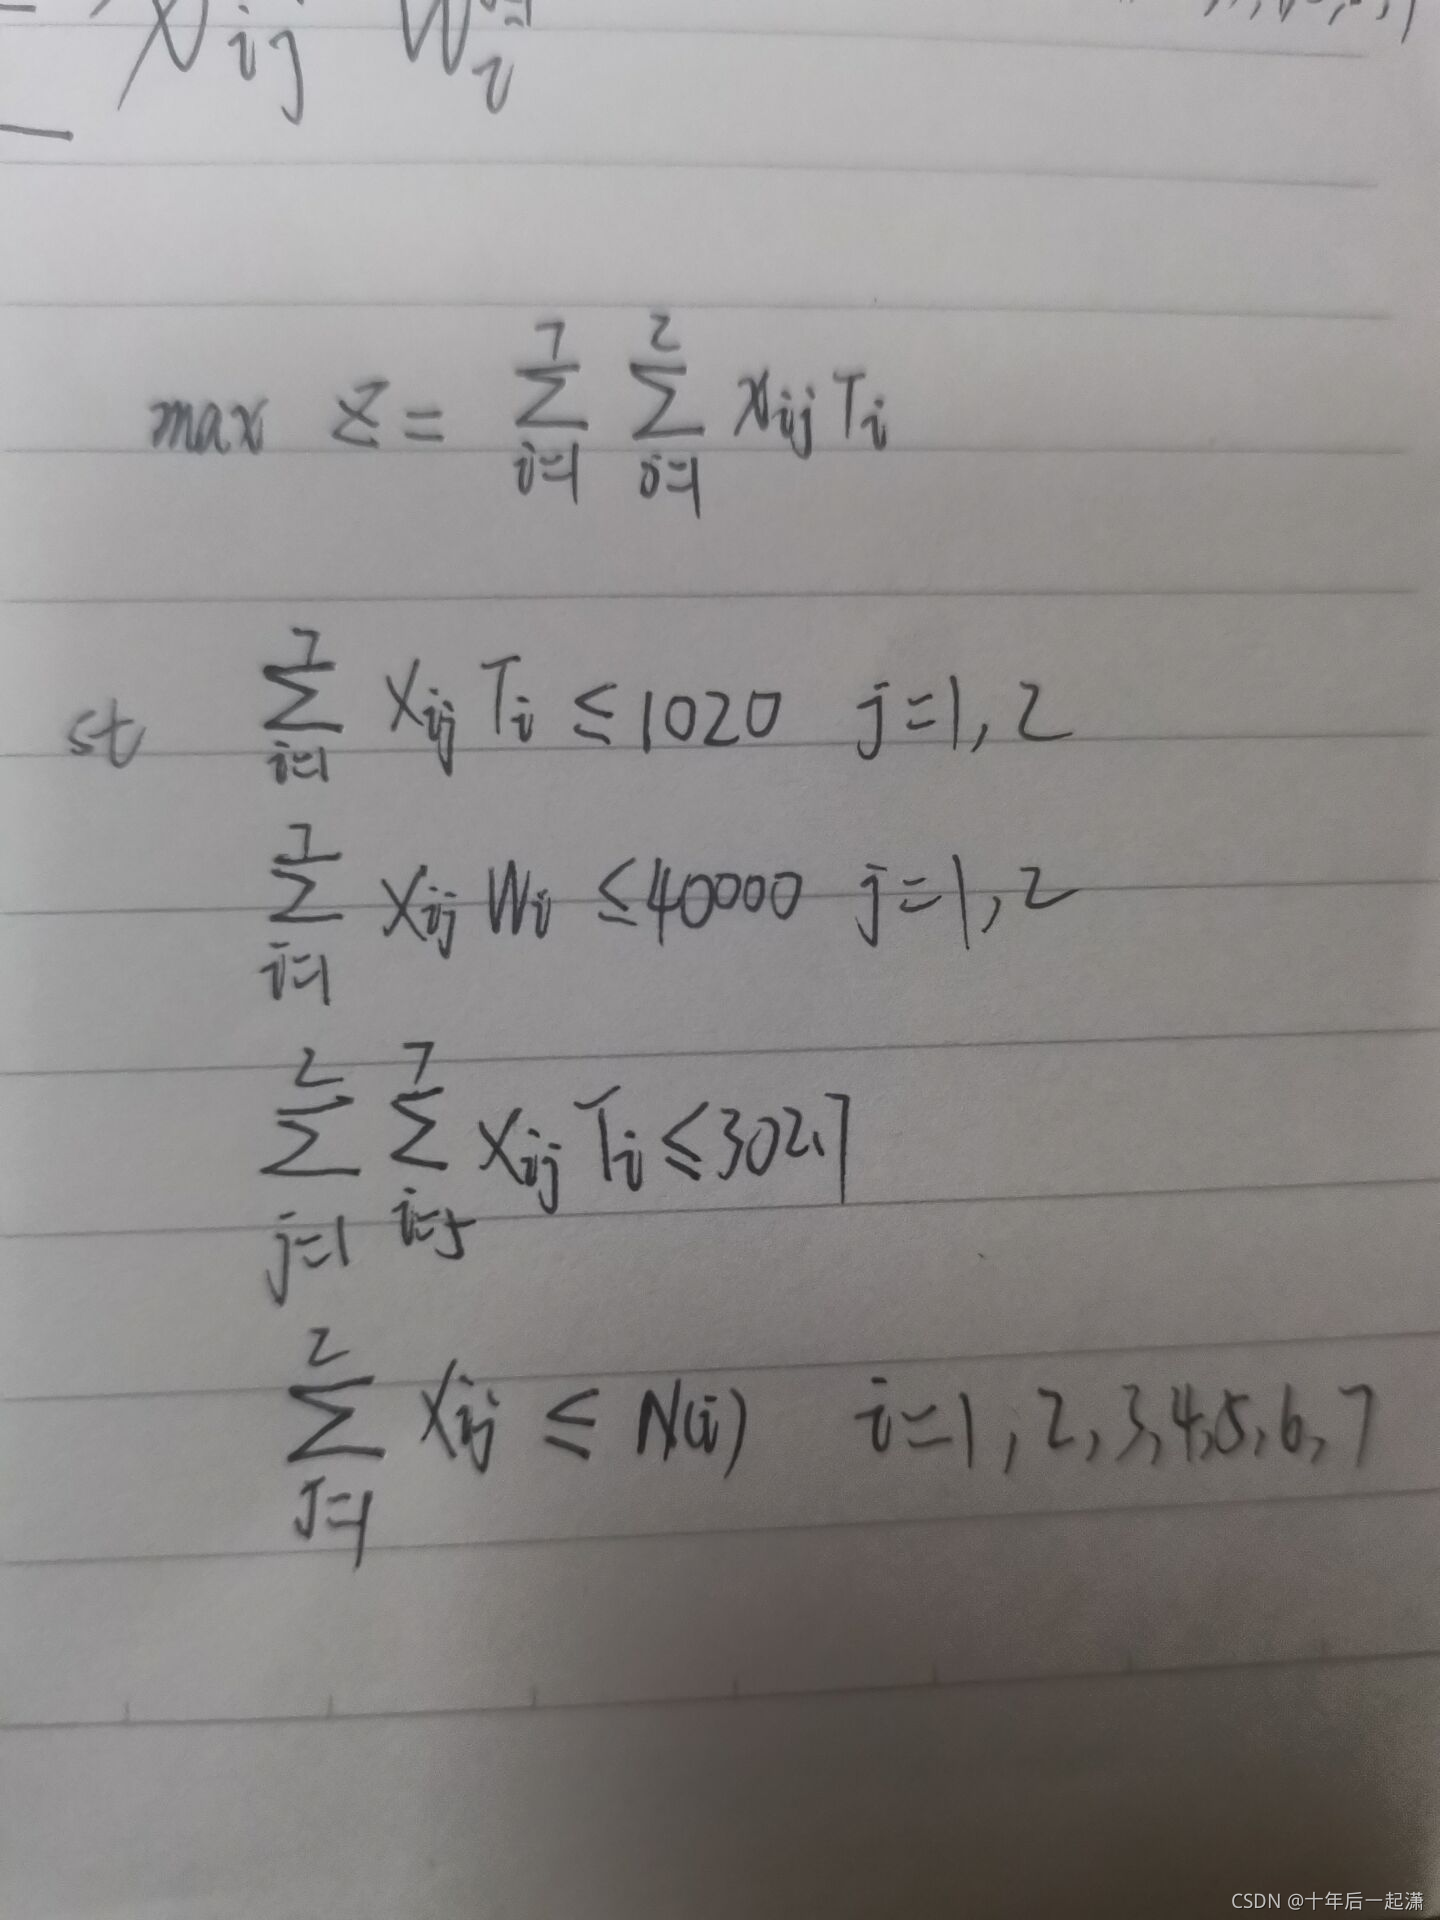 x_{ij} W_i
max Z = \sum_{i=1}^{7} \sum_{j=1}^{2} x_{ij} T_i
st \sum_{i=1}^{7} x_{ij} T_i ≤ 1020 j=1, 2
\sum_{i=1}^{7} x_{ij} W_i ≤ 40000 j=1, 2
\sum_{j=1}^{2} \sum_{i=5}^{7} x_{ij} T_i ≤ 302.7
\sum_{j=1}^{2} x_{ij} ≤ N(i) i=1, 2, 3, 4, 5, 6, 7
CSDN @十年后一起潇